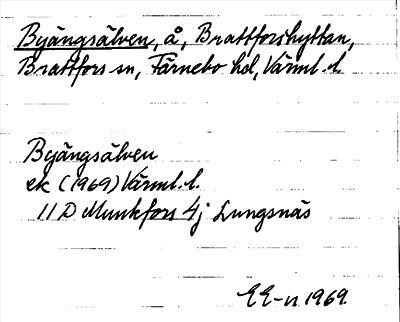 Byängsälven, å, Brattforshyttan,
Brattfors sn, Färnebo hd, Värml. l.
Byängsälven
ek (1969) Värml. l.
11 D Munkfors 4j Lungsnäs
EE-n 1969.